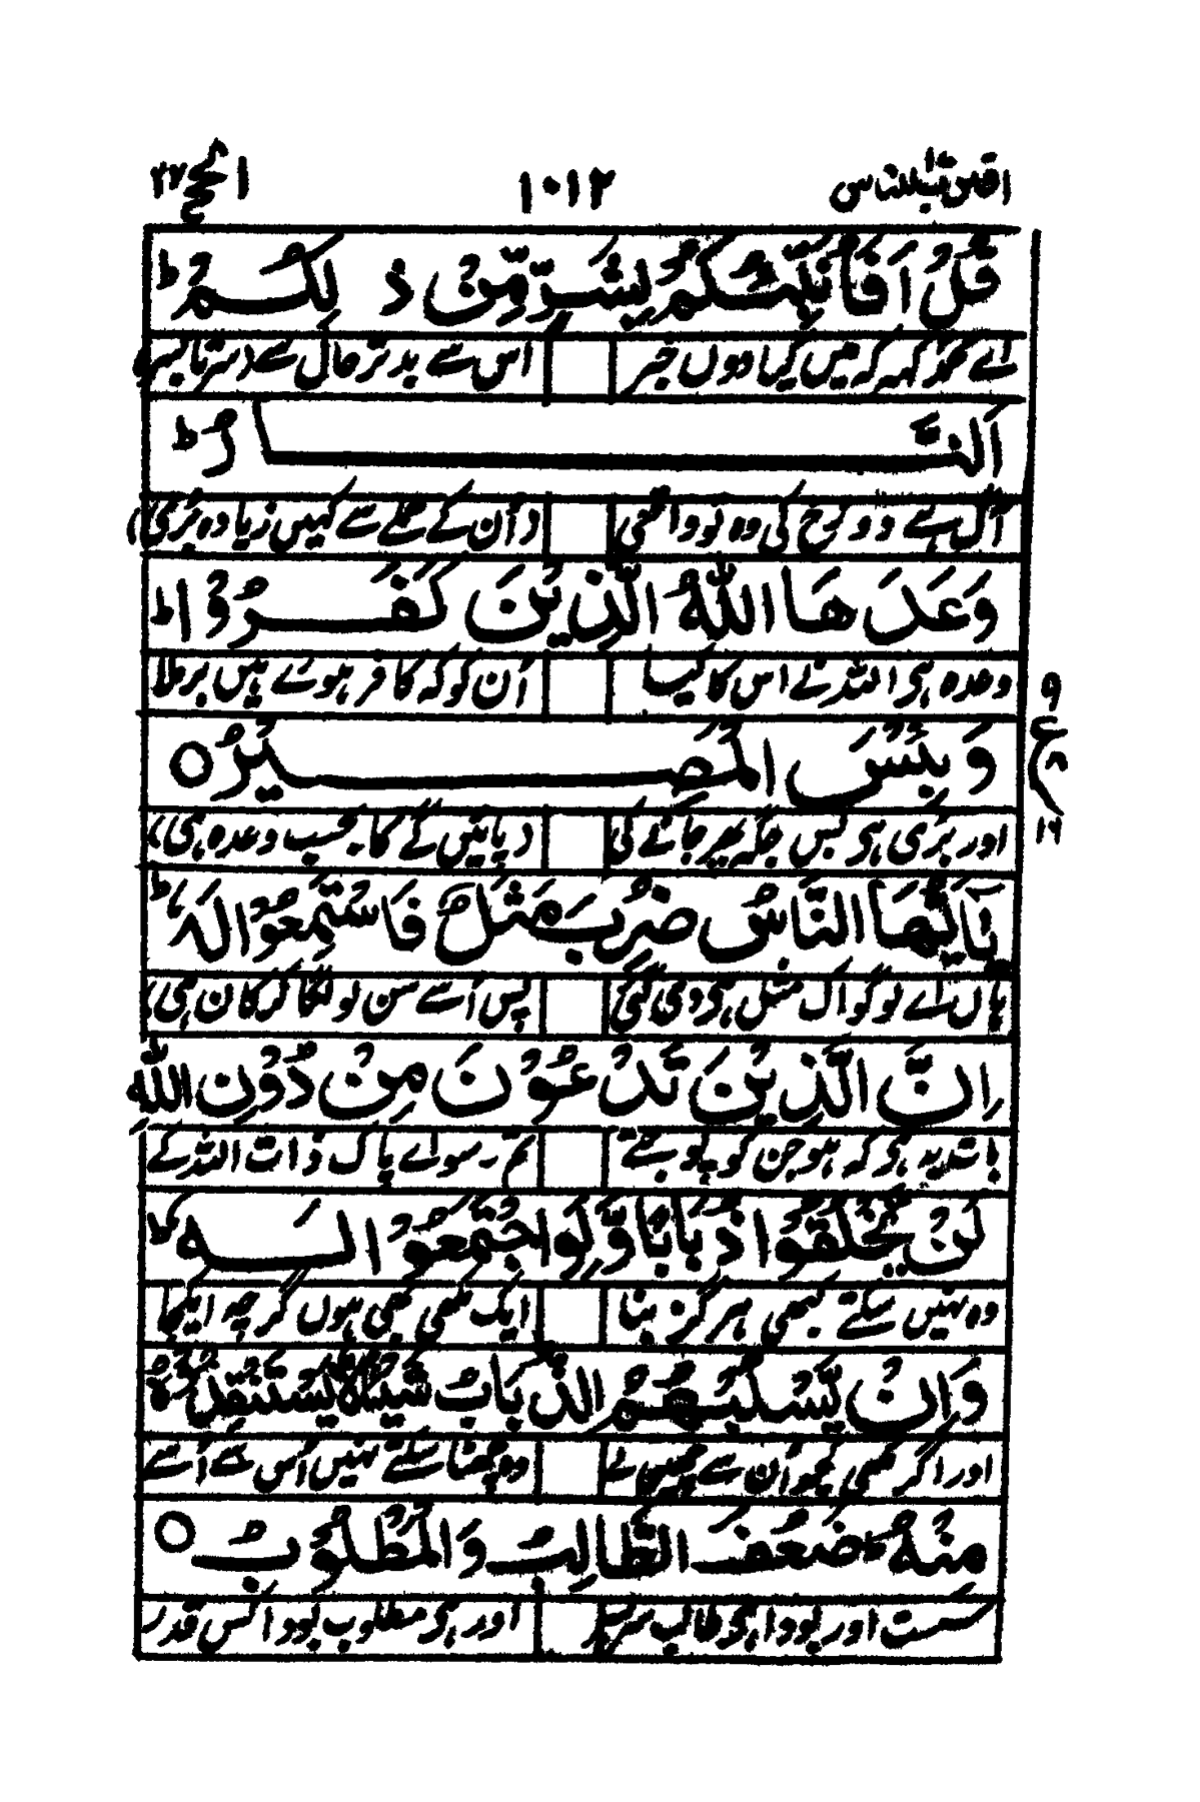 اقترب للناس ۱۰۱۲ الحج ۲۲
قُلْ اَفَاُنَبِّئُكُمْ بِشَرٍّ مِّنْ ذٰلِكُمْ ط
اے محمدؐ کہہ کہ میں کیا دوں خبر اس سے بدتر حال سے (سرتا بسر)
اَلنَّارُ ط
آگ ہے دوزخ کی وہ تو واقعی (اُن کے حملے سے کہیں زیادہ بُری)
وَعَدَهَا اللّٰهُ الَّذِيْنَ كَفَرُوْا ط
وعدہ ہی اللہ نے اس کا کیا اُن کو کہ کافر ہوئے ہیں برملا
وَبِئْسَ الْمَصِيْرُ ○
اور بُری ہی بس جگہ پھر جانے کی (پائیں گے کا۔ حسب وعدہ ہی)
۹
ع
۸
۱۶
يٰۤاَيُّهَا النَّاسُ ضُرِبَ مَثَلٌ فَاسْتَمِعُوْا لَهٗ ط
ہاں اے لوگو اک مثل ہی دی گئی پس اُسے سن لو لگا کر کان ہی
اِنَّ الَّذِيْنَ تَدْعُوْنَ مِنْ دُوْنِ اللّٰهِ
باتقدیہ ہی کہ ہو جن کو پوجتے تم سوائے پاک ذات اللہ کے
لَنْ يَّخْلُقُوْا ذُبَابًا وَّلَوِ اجْتَمَعُوْا لَهٗ ط
وہ نہیں سکتے کبھی ہرگز بنا ایک مکھی بھی ہوں گرچہ ایکجا
وَاِنْ يَّسْلُبْهُمُ الذُّبَابُ شَيْـًٔا لَّا يَسْتَنْقِذُوْهُ
اور اگر مکھی کچھ اُن سے چھین لے وہ چھڑا سکتے نہیں اُس سے اُسے
مِنْهُ ط ضَعُفَ الطَّالِبُ وَالْمَطْلُوْبُ ○
سست اور بودا ہی طالب سر بسر اور ہی مطلوب بودا کس قدر